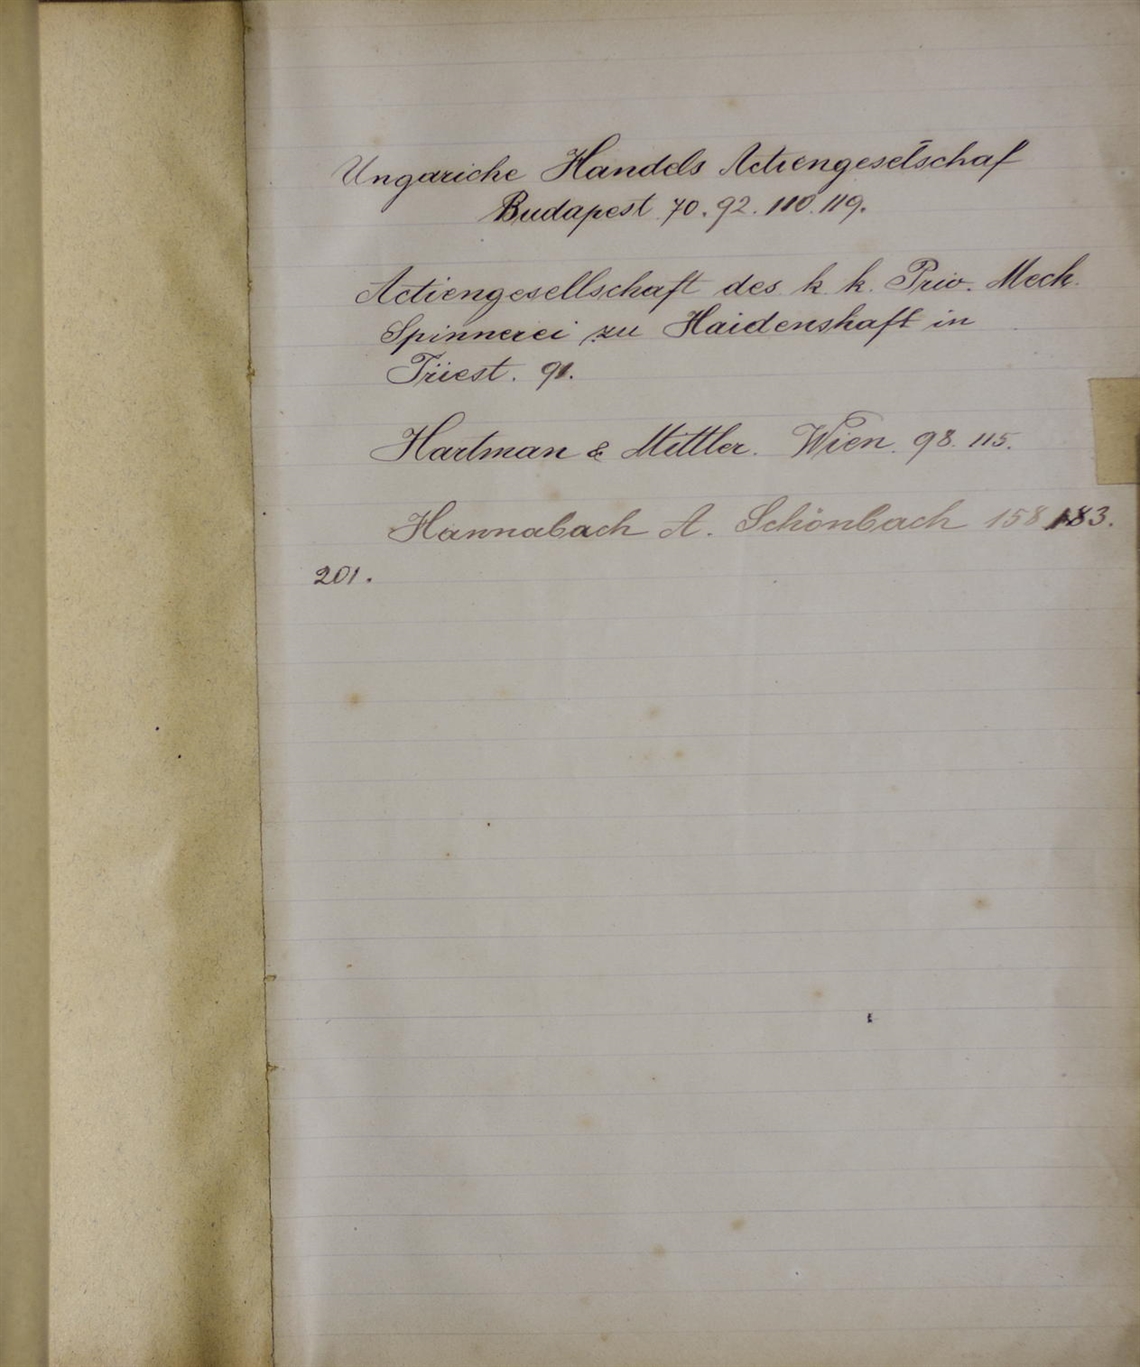 Ungariche Handels Actiengesetschaf
Budapest 70. 92. 110. 119.
Actiengesellschaft des k. k. Priv. Mech.
Spinnerei zu Haidenshaft in
Triest. 91.
Hartman & Mittler. Wien. 98. 115.
Hannabach A. Schönbach 158 183.
201.